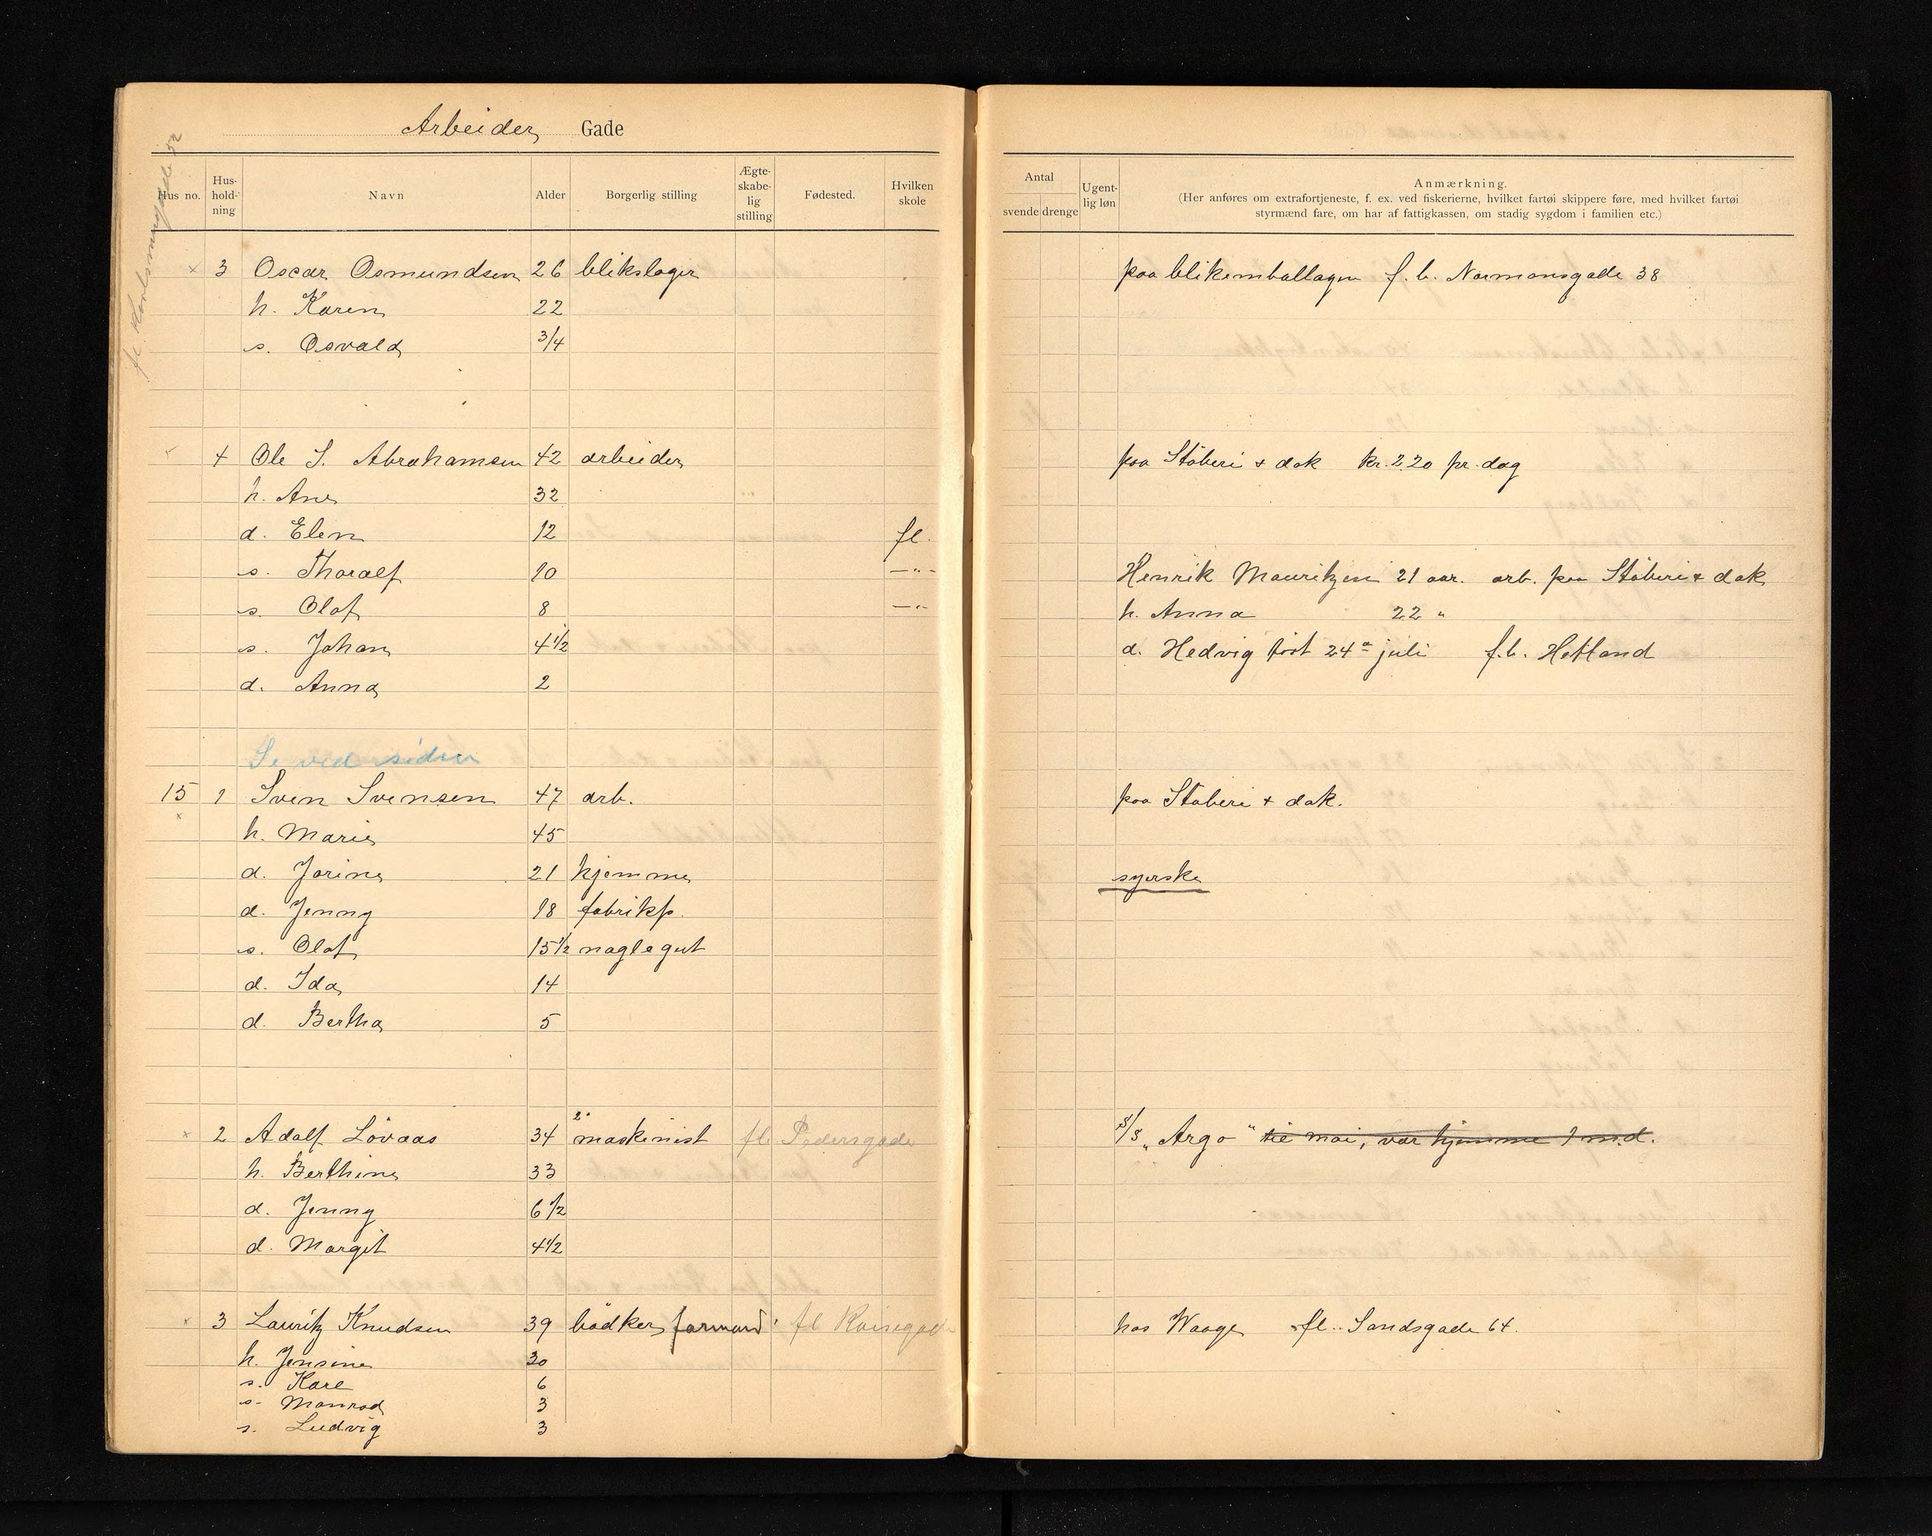 Arbeider Gade
Hus no. Hus-hold-ning Navn Alder Borgerlig stilling Ægte-skabe-lig stilling Fødested. Hvilken skole
Antal svende drenge Ugent-lig løn Anmærkning.
(Her anføres om extrafortjeneste, f. ex. ved fiskerierne, hvilket fartøi skippere føre, med hvilket fartøi
styrmænd fare, om har af fattigkassen, om stadig sygdom i familien etc.)
× 3 Oscar Osmundsen 26 blikslager paa blikemballagen f. b. Normansgade 38
h. Karen 22
s. Osvald 3/4
4 Ole S. Abrahamsen 42 arbeider paa Støberi & dok kr. 2.20 pr. dag
h. Ane 32
d. Elen 12 fl.
s. Thoralf 10 —"— Henrik Mauritzen 21 aar. arb. paa Støberi & dok
s. Olaf 8 —"— h. Anna 22 "
s. Johan 4 1/2 d. Hedvig født 24de juli f. b. Hetland
d. Anna 2
Se ved siden
15 1 Sven Svensen 47 arb. paa Støberi & dok.
× h. Marie 45
d. Jorine 21 hjemme syerske
d. Jenny 18 fabrikp.
s. Olaf 15 1/2 naglegut
d. Ida 14
d. Bertha 5
× 2 Adolf Lövaas 34 2' maskinist fl. Pedersgade S/S "Argo" til mai, var hjemme 1 md.
h. Berthine 33
d. Jenny 6 1/2
d. Margit 4 1/2
× 3 Lauritz Knudsen 39 bödker formand fl hos Waage fl. Sandsgade 64.
h. Jensine 30
s. Kåre 6
s. Monrad 3
s. Ludvig 3